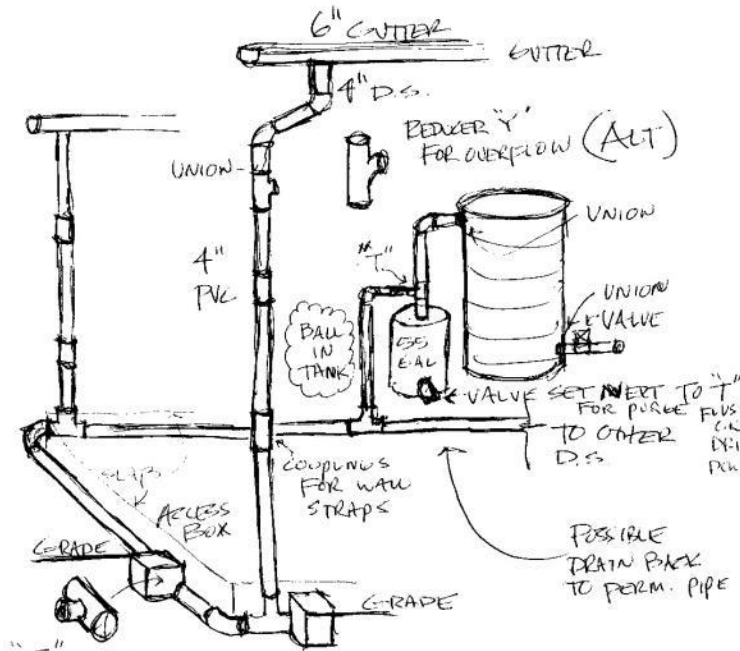 6" GUTTER
GUTTER
4" D.S.
REDUCER "Y"
FOR OVERFLOW (ALT)
UNION
UNION
4"
PVC
"T"
UNION
VALVE
BALL
IN
TANK
55
GAL
VALVE SET NEXT TO "T"
FOR PURGE
TO OTHER
D.S.
COUPLINGS
FOR WALL
STRAPS
SLAB
ACCESS
BOX
GRADE
GRADE
POSSIBLE
DRAIN BACK
TO PERM. PIPE